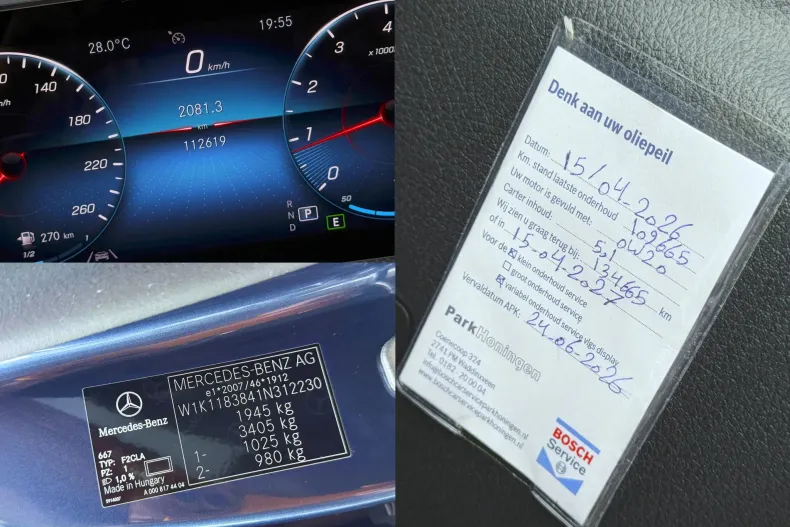 28.0°C
19:55
0 km/h
2081.3
km
112619
140
180
220
260
km/h
270 km
1/2
1
4
3
2
1
0
x1000
50
R
N
D
P
E
MERCEDES-BENZ AG
e1*2007/46*1912
W1K1183841N312230
1945 kg
3405 kg
1- 1025 kg
2- 980 kg
Mercedes-Benz
667
TYP: F2CLA
PZ: 1
1,0 %
Made in Hungary
A 000 817 44 04
Denk aan uw oliepeil
Datum: 15/04-2026
Km. stand laatste onderhoud 109665
Uw motor is gevuld met: 0W20
Carter inhoud: 5,1
Wij zien u graag terug bij: 134665 km
of in 15-04-2027
Voor de klein onderhoud service
groot onderhoud service
variabel onderhoud service vlgs display
Vervaldatum APK: 24-06-2026
ParkHoningen
Coenecoop 324
2741 PM Waddinxveen
Tel. 0182 - 20 00 04
info@boschcarserviceparkhoningen.nl
www.boschcarserviceparkhoningen.nl
BOSCH
Service